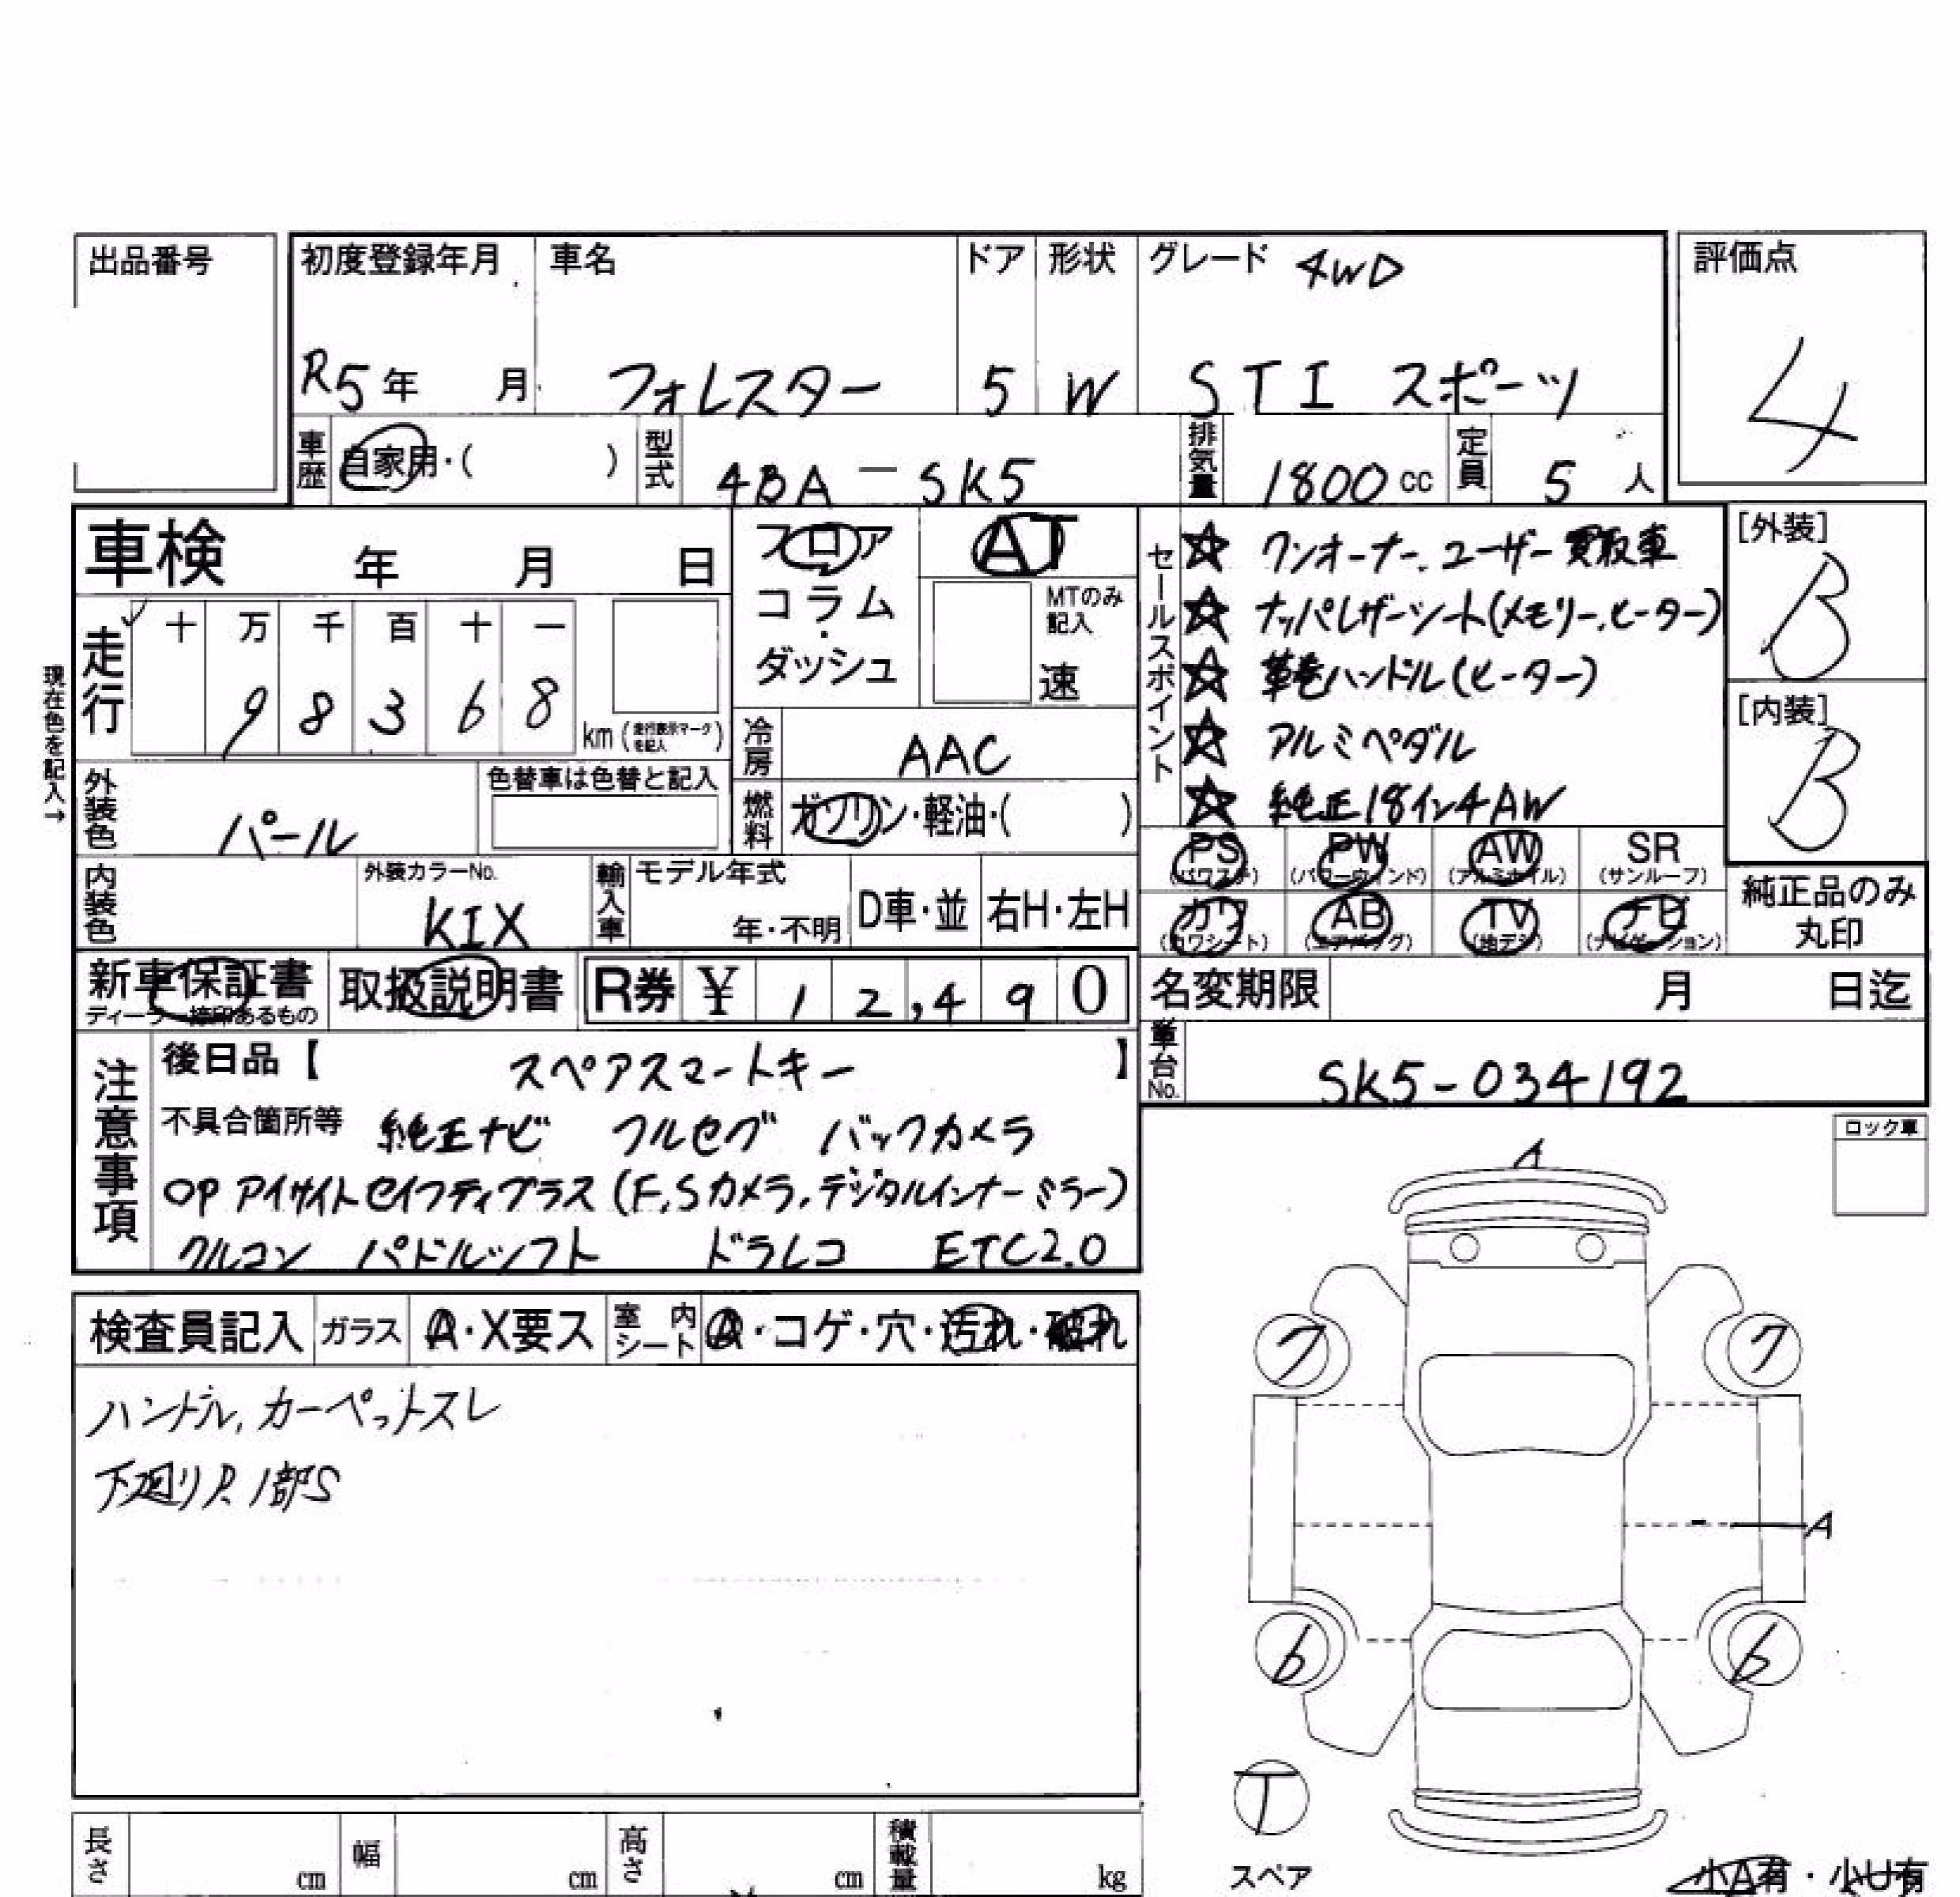 出品番号
初度登録年月 車名 ドア 形状 グレード 4WD
評価点
R5年 月 フォレスター 5 W STI スポーツ
4
車歴 自家用・( ) 型式 4BA-SK5 排気量 1800cc 定員 5人
車検 年 月 日
フロア
コラム
・
ダッシュ
AT
MTのみ
記入
速
セールスポイント
☆ ワンオーナー、ユーザー買取車
☆ ナッパレザーシート(メモリー、ヒーター)
☆ 革巻ハンドル(ヒーター)
☆ アルミペダル
☆ 純正18インチAW
[外装]
B
[内装]
B
現在色を記入→
走行 十 万 千 百 十 一
9 8 3 6 8
km (走行表示マークを記入)
冷房 AAC
外装色 パール 色替車は色替と記入
燃料 ガソリン・軽油・( )
PS PW AW SR
(パワステ) (パワーウィンド) (アルミホイル) (サンルーフ)
カワ AB TV ナビ
(カワシート) (エアバッグ) (地デジ) (ナビゲーション)
純正品のみ
丸印
内装色 外装カラーNo. KIX 輸入車 モデル年式 年・不明 D車・並 右H・左H
新車保証書 取扱説明書 R券 ¥ 12,490
ディーラー捺印あるもの
名変期限 月 日迄
車台No. SK5-034192
注意事項
後日品【 スペアスマートキー 】
不具合箇所等 純正ナビ フルセグ バックカメラ
OP アイサイトセイフティプラス(F,Sカメラ,デジタルインナーミラー)
クルコン パドルシフト ドラレコ ETC2.0
ロック車
検査員記入 ガラス A・X要ス 室内シート A・コゲ・穴・汚れ・破れ
ハンドル,カーペットスレ
下廻りP.1部S
A
7 7
A
6 6
T
スペア
小A有・小U有
長さ cm 幅 cm 高さ cm 積載量 kg